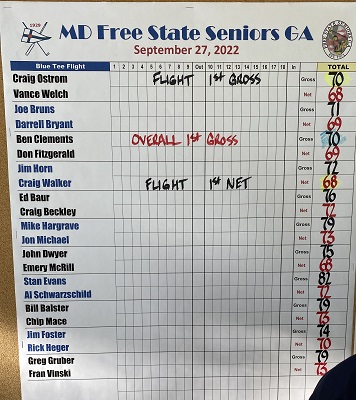 1929
MD Free State Seniors GA
September 27, 2022
Blue Tee Flight 1 2 3 4 5 6 7 8 9 Out 10 11 12 13 14 15 16 17 18 In TOTAL
Craig Ostrom FLIGHT 1st GROSS Gross 70
Vance Welch Net 68
Joe Bruns Gross 71
Darrell Bryant Net 69
Ben Clements OVERALL 1st GROSS Gross 70
Don Fitzgerald Net 69
Jim Horn Gross 72
Craig Walker FLIGHT 1st NET Net 68
Ed Baur Gross 76
Craig Beckley Net 72
Mike Hargrave Gross 79
Jon Michael Net 73
John Dwyer Gross 75
Emery McRill Net 68
Stan Evans Gross 82
Al Schwarzschild Net 77
Bill Balster Gross 79
Chip Mace Net 73
Jim Foster Gross 74
Rick Heger Net 70
Greg Gruber Gross 79
Fran Vinski Net 73